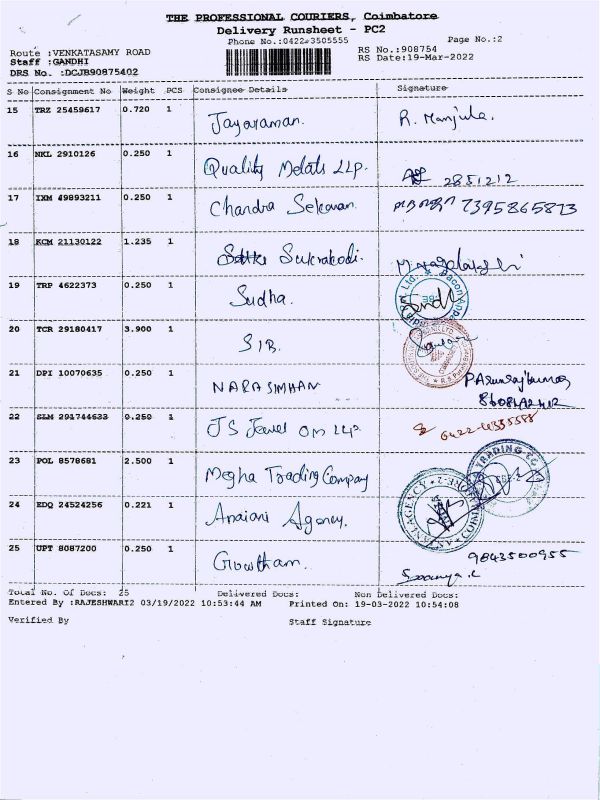 THE PROFESSIONAL COURIERS, Coimbatore
Delivery Runsheet - PC2
Phone No.:0422-3505555 Page No.:2
Route :VENKATASAMY ROAD RS No.:908754
Staff :GANDHI RS Date:19-Mar-2022
DRS No. :DCJB90875402
S No Consignment No Weight PCS Consignee Details Signature
15 TRZ 25459617 0.720 1 Jayaraman. R. Manjula.
16 NKL 2910126 0.250 1 Quality Metals LLP. 2851212
17 IXM 49893211 0.250 1 Chandra Sekaran. 7395865873
18 KCM 21130122 1.235 1 Sukrakodi.
19 TRP 4622373 0.250 1 Sudha.
20 TCR 29180417 3.900 1 SIB.
21 DPI 10070635 0.250 1 NARASIMHAN
22 SLM 291744633 0.250 1 JS Jewel Om LLP.
23 POL 8578681 2.500 1 Megha Trading Company
24 EDQ 24524256 0.221 1 Anaiani Agency.
25 UPT 8087200 0.250 1 Gowtham. 9843500955
Sowmya.c
Total No. Of Docs: 25 Delivered Docs: Non Delivered Docs:
Entered By :RAJESHWARI2 03/19/2022 10:53:44 AM Printed On: 19-03-2022 10:54:08
Verified By Staff Signature